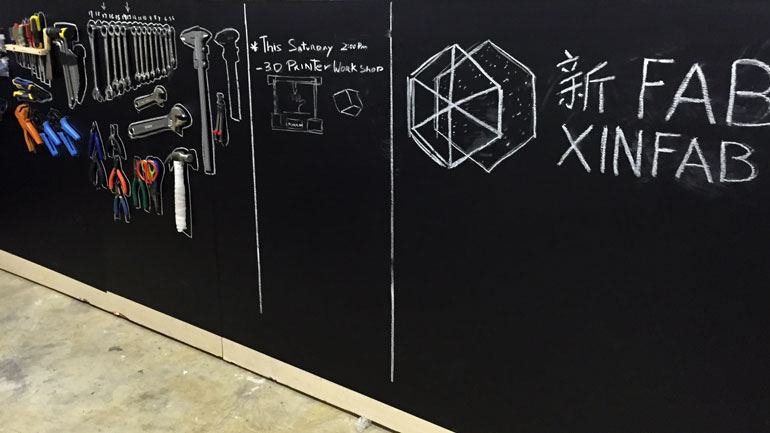 * This Saturday 2:00 Pm
- 3D Printer Workshop
新 FAB
XINFAB